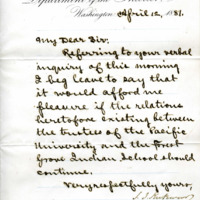 Department of the Interior,
Washington, April 12, 1881.
My Dear Sir,
Referring to your verbal
inquiry of this morning
I beg leave to say that
it would afford me
pleasure if the relations
heretofore existing between
the trustees of the Pacific
University and the Forest
Grove Indian School should
continue.
Very respectfully yours,
S. J. Kirkwood